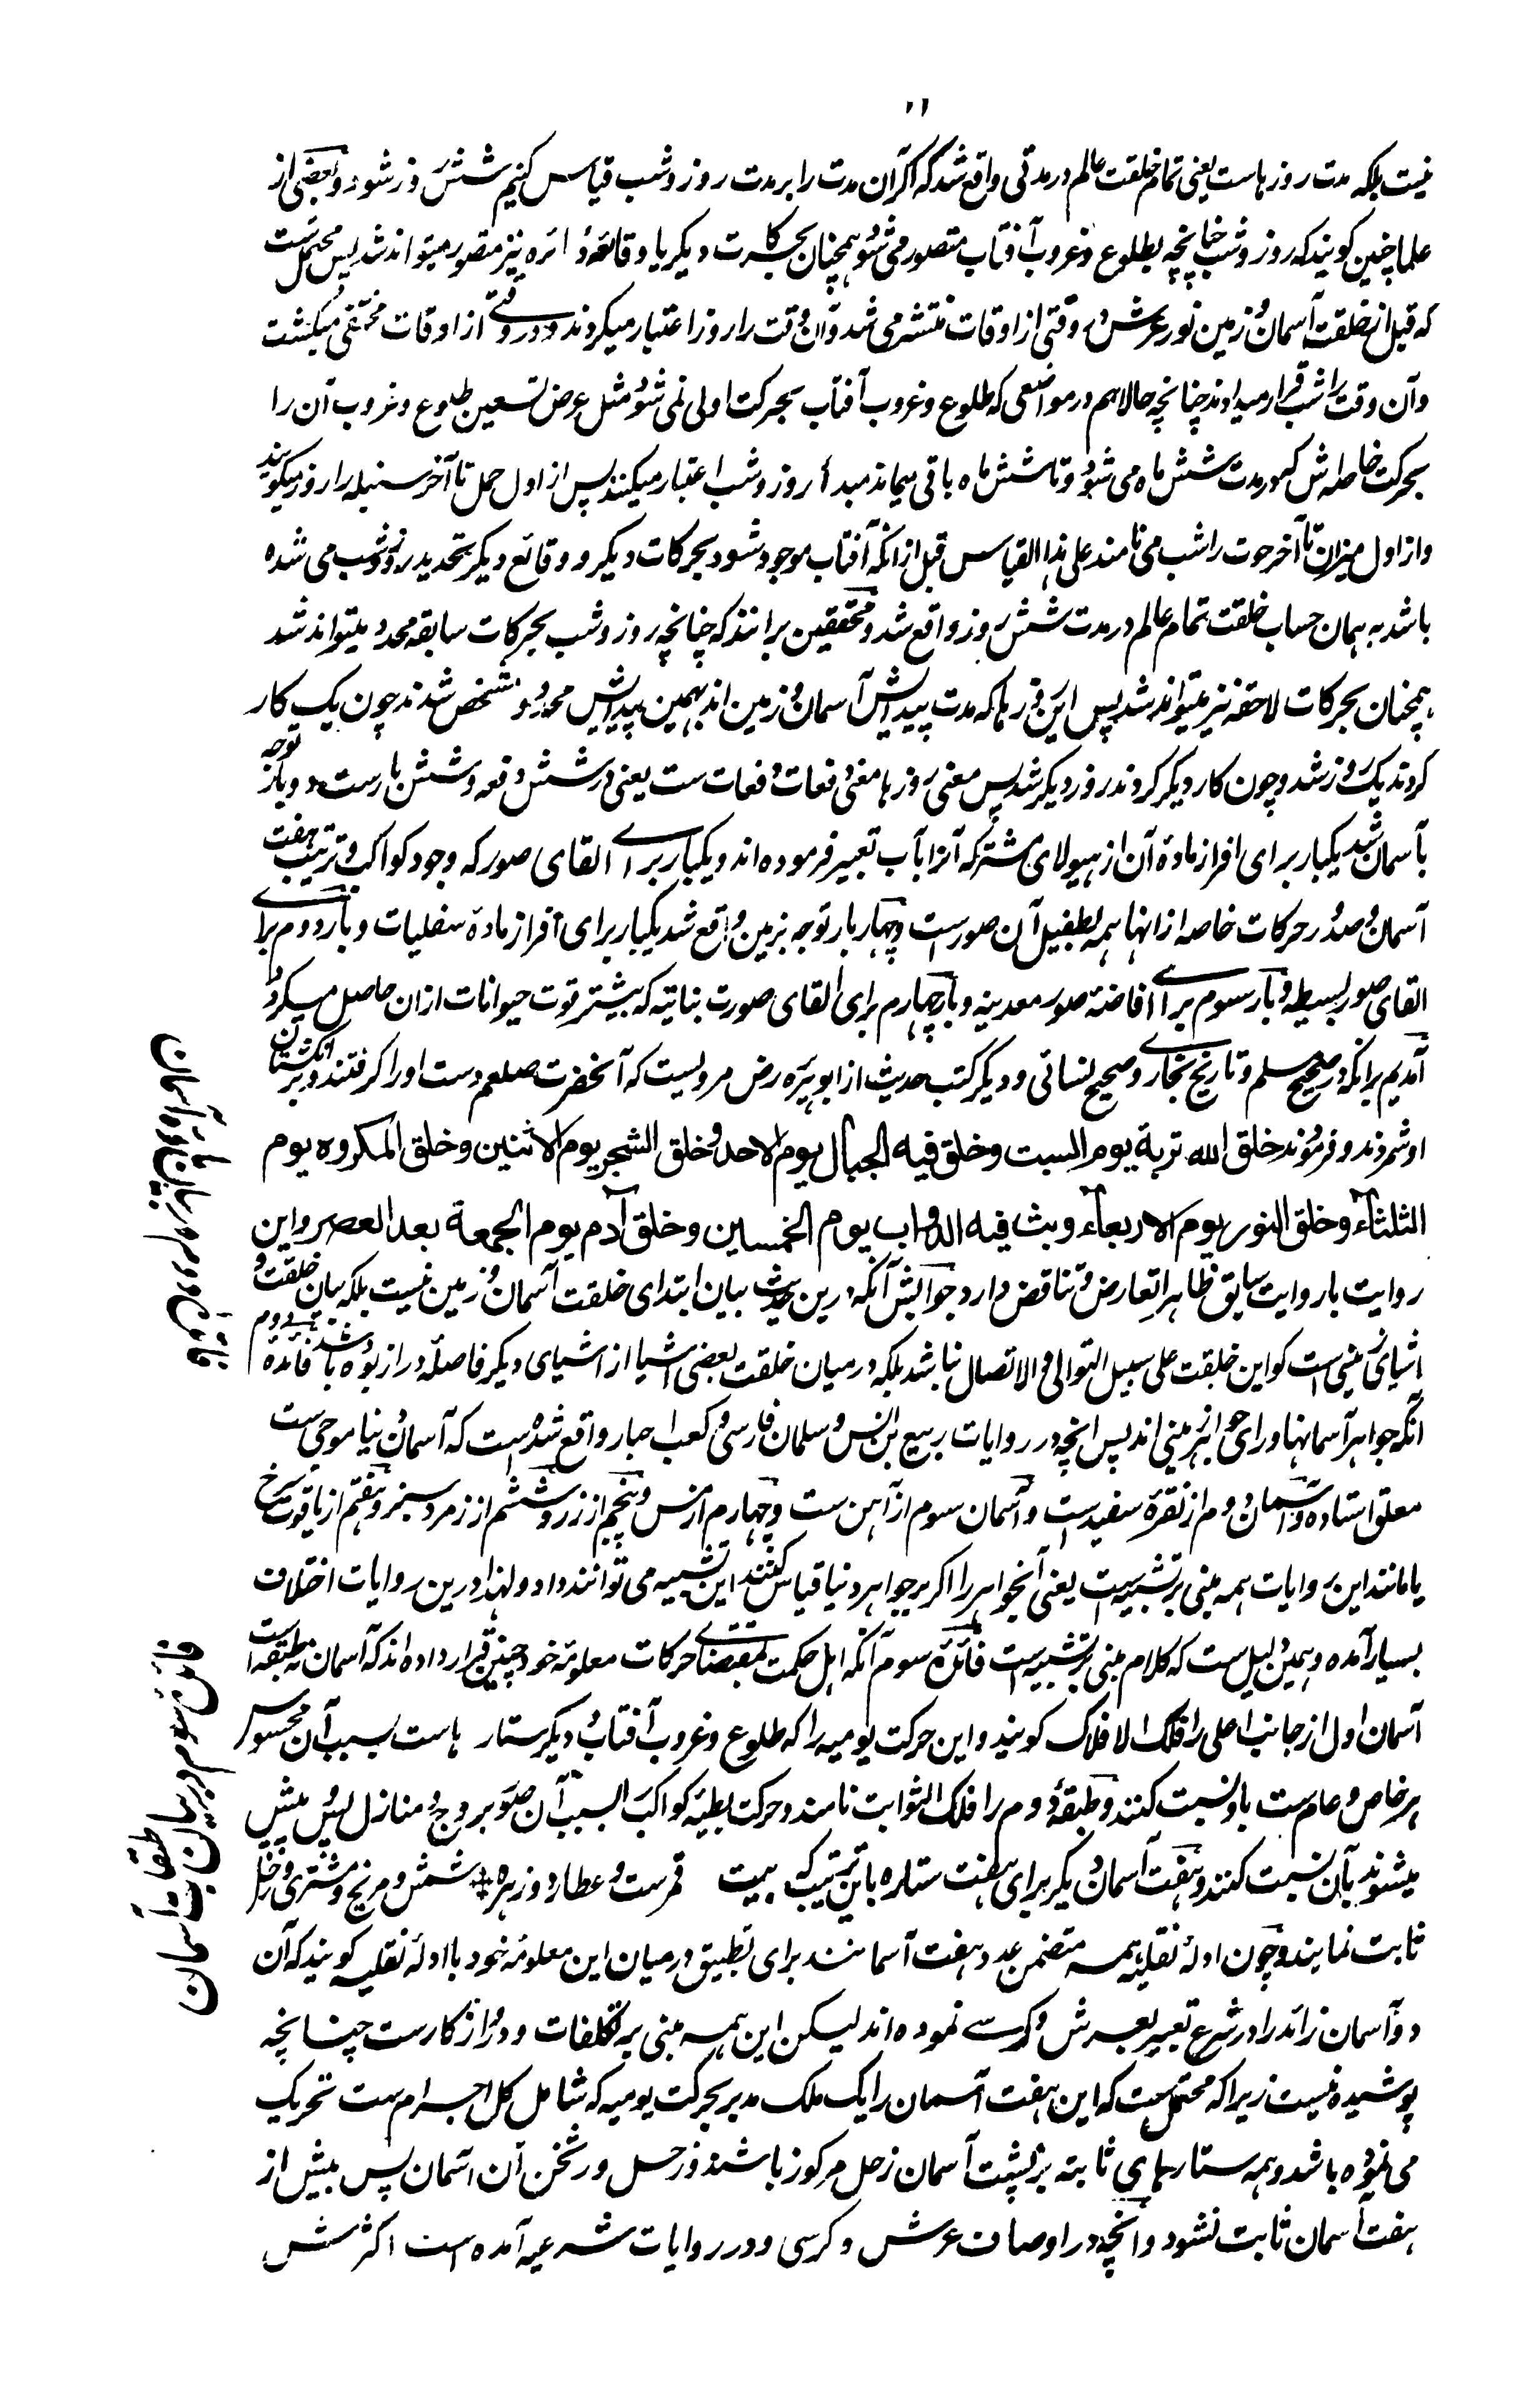 ۱۱
نیست بلکه مدت روزهاست یعنی تمام خلقت عالم در مدتی واقع شد که اگر آن مدت را بر مدت روز و شب قیاس کنیم شش روز شود و بعضی از
علما چنین گویند که روز و شب چنانچه بطلوع و غروب آفتاب متصور می شود همچنان بحرکت دیگر یا وقائع دائره نیز متصور میتواند شد پس محتمل ست
که قبل از خلقت آسمان و زمین نور عرش در وقتی از اوقات منتشر می شد و آن وقت را روز اعتبار میکردند و در وقتی از اوقات مختفی میگشت
و آن وقت را شب قرار میدادند چنانچه حالا هم در مواضعی که طلوع و غروب آفتاب بحرکت اولی نمی شود مثل عرض تسعین طلوع و غروب آن را
بحرکت خاصه اش که در مدت شش ماه می شود و تا شش ماه باقی میماند مبدأ روز و شب اعتبار میکنند پس از اول حمل تا آخر سنبله را روز میگویند
و از اول میزان تا آخر حوت را شب می نامند علی هذا القیاس قبل از آنکه آفتاب موجود شود بحرکات دیگر و وقائع دیگر تحدید روز و شب می شده
باشد به همان حساب خلقت تمام عالم در مدت شش روز واقع شد و محققین برانند که چنانچه روز و شب بحرکات سابقه محدود میتواند شد
همچنان بحرکات لاحقه نیز میتواند شد پس این روزها که مدت پیدایش آسمان و زمین اند بهمین پیدایش محدود و مشخص شدند چون یک کار
کردند یک روز شد و چون کار دیگر کردند روز دیگر شد پس معنی روزها معنی دفعات و فعات ست یعنی در شش دفعه و شش بارست و دو بار توجه
بآسمان شد یکبار برای افراز مادۀ آن از هیولای مشترکه که آنرا بآب تعبیر فرموده اند و یکبار برای القای صور که وجود کواکب و ترتیب هفت
آسمان و صدور حرکات خاصه از انها همه بطفیل آن صورست و چهار بار توجه بزمین واقع شد یکبار برای افراز مادۀ سفلیات و بار دوم برای
القای صور بسیطه و بار سوم برای افاضۀ صور معدنیه و بار چهارم برای القای صورت نباتیه که بیشتر قوت حیوانات ازان حاصل میگردد
آمدیم برانکه در صحیح مسلم و تاریخ بخاری و صحیح نسائی و دیگر کتب حدیث از ابوهریره رض مرویست که آنحضرت صلعم دست او را گرفتند و بر انگشتان
او شمردند و فرمودند خلق الله تربة يوم السبت وخلق فيه الجبال يوم الاحد وخلق الشجر يوم الاثنين وخلق المكروه يوم
الثلثاء وخلق النور يوم الاربعاء وبث فيه الدواب يوم الخميس وخلق آدم يوم الجمعة بعد العصر و این
روایت با روایت سابق ظاهرا تعارض و تناقض دارد جوابش آنکه درین حدیث بیان ابتدای خلقت آسمان و زمین نیست بلکه بیان خلقت
اشیای زمینی است گو این خلقت علی سبیل التوالی و الاتصال نباشد بلکه در میان خلقت بعضی اشیا از اشیای دیگر فاصلۀ دراز بوده باشد فائدۀ دوم
آنکه جواهر آسمانها ورای جواهر زمینی اند پس انچه در روایات ربیع ابن انس و سلمان فارسی و کعب احبار واقع شده است که آسمان دنیا موجی ست
معلق استاده و آسمان دوم از نقرۀ سفیدست و آسمان سوم از آهن ست و چهارم از مس و پنجم از زر و ششم از زمرد سبز و هفتم از یاقوت سرخ
یا مانند این روایات همه مبنی بر تشبیه ست یعنی آنجواهر را اگر بر جواهر دنیا قیاس کنند این تشبیه می توانند داد و لهذا درین روایات اختلاف
بسیار آمده و همین دلیل ست که کلام مبنی بر تشبیه است فائدۀ سوم آنکه اهل حکمت بمقتضای حرکات معلومه خود چنین قرار داده اند که آسمان نه طبقه است
آسمان اول از جانب اعلی را فلک الافلاک گویند و این حرکت یومیه را که طلوع و غروب آفتاب و دیگر ستارهاست بسبب آن محسوس
هر خاص و عام ست باو نسبت کنند و طبقۀ دوم را فلک الثوابت نامند و حرکت بطیئه کواکب را بسبب آن صور بروج و منازل پس و پیش
میشوند بآن نسبت کنند و هفت آسمان دیگر برای هفت ستاره باین ترتیب که بیت قمرست و عطارد و زهره شمس و مریخ و مشتری و زحل
ثابت نمایند و چون ادلۀ نقلیه همه متضمن عدد هفت آسمانند برای تطبیق در میان این معلومۀ خود با ادلۀ نقلیه گویند که آن
دو آسمان زائد را در شرع تعبیر بعرش و کرسی نموده اند لیکن این همه مبنی بر تکلفات و دور از کارست چنانچه
پوشیده نیست زیرا که محتمل ست که این هفت آسمان را یک ملک مدبر بحرکت یومیه که شامل کل اجرام ست تحریک
می نموده باشد و همه ستارهای ثابته بر پشت آسمان زحل مرکوز باشند و زحل در ثخن آن آسمان پس بیش از
هفت آسمان ثابت نشود و انچه در اوصاف عرش و کرسی و در روایات شرعیه آمده است اکثرشش
فائدۀ سوم در بیان طبقات آسمان